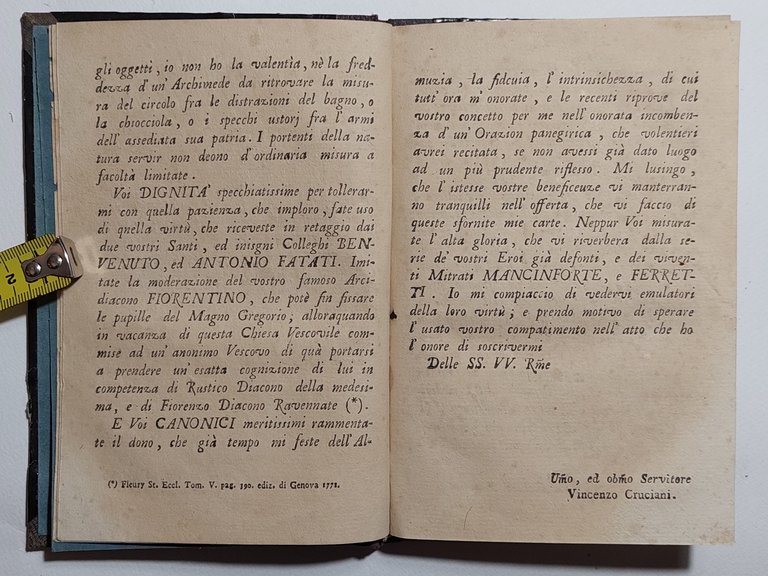 gli oggetti, io non ho la valentìa, nè la fred-
dezza d'un'Archimede da ritrovare la misu-
ra del circolo fra le distrazioni del bagno, o
la chiocciola, o i specchi ustorj fra l'armi
dell'assediata sua patria. I portenti della na-
tura servir non deono d'ordinaria misura a
facoltà limitate.
Voi DIGNITA' specchiatissime per tollerar-
mi con quella pazienza, che imploro, fate uso
di quella virtù, che riceveste in retaggio dai
due vostri Santi, ed insigni Colleghi BEN-
VENUTO, ed ANTONIO FATATI. Imi-
tate la moderazione del vostro famoso Arci-
diacono FIORENTINO, che potè fin fissare
le pupille del Magno Gregorio; alloraquando
in vacanza di questa Chiesa Vescovile com-
mise ad un anonimo Vescovo di quà portarsi
a prendere un'esatta cognizione di lui in
competenza di Rustico Diacono della medesi-
ma, e di Fiorenzo Diacono Ravennate (*).
E Voi CANONICI meritissimi rammenta-
te il dono, che già tempo mi feste dell'Al-
(*) Fleury St. Eccl. Tom. V. pag. 390. ediz. di Genova 1771.
muzia, la fidcuia, l'intrinsichezza, di cui
tutt'ora m'onorate, e le recenti riprove del
vostro concetto per me nell'onorata incomben-
za d'un'Orazion panegirica, che volentieri
avrei recitata, se non avessi già dato luogo
ad un più prudente riflesso. Mi lusingo,
che l'istesse vostre beneficeuze vi manterran-
no tranquilli nell'offerta, che vi faccio di
queste sfornite mie carte. Neppur Voi misura-
te l'alta gloria, che vi riverbera dalla se-
rie de' vostri Eroi già defonti, e dei viven-
ti Mitrati MANCINFORTE, e FERRET-
TI. Io mi compiaccio di vedervi emulatori
della loro virtù; e prendo motivo di sperare
l'usato vostro compatimento nell'atto che ho
l'onore di soscrivermi
Delle SS. VV. Rme
Umo, ed obmo Servitore
Vincenzo Cruciani.
2